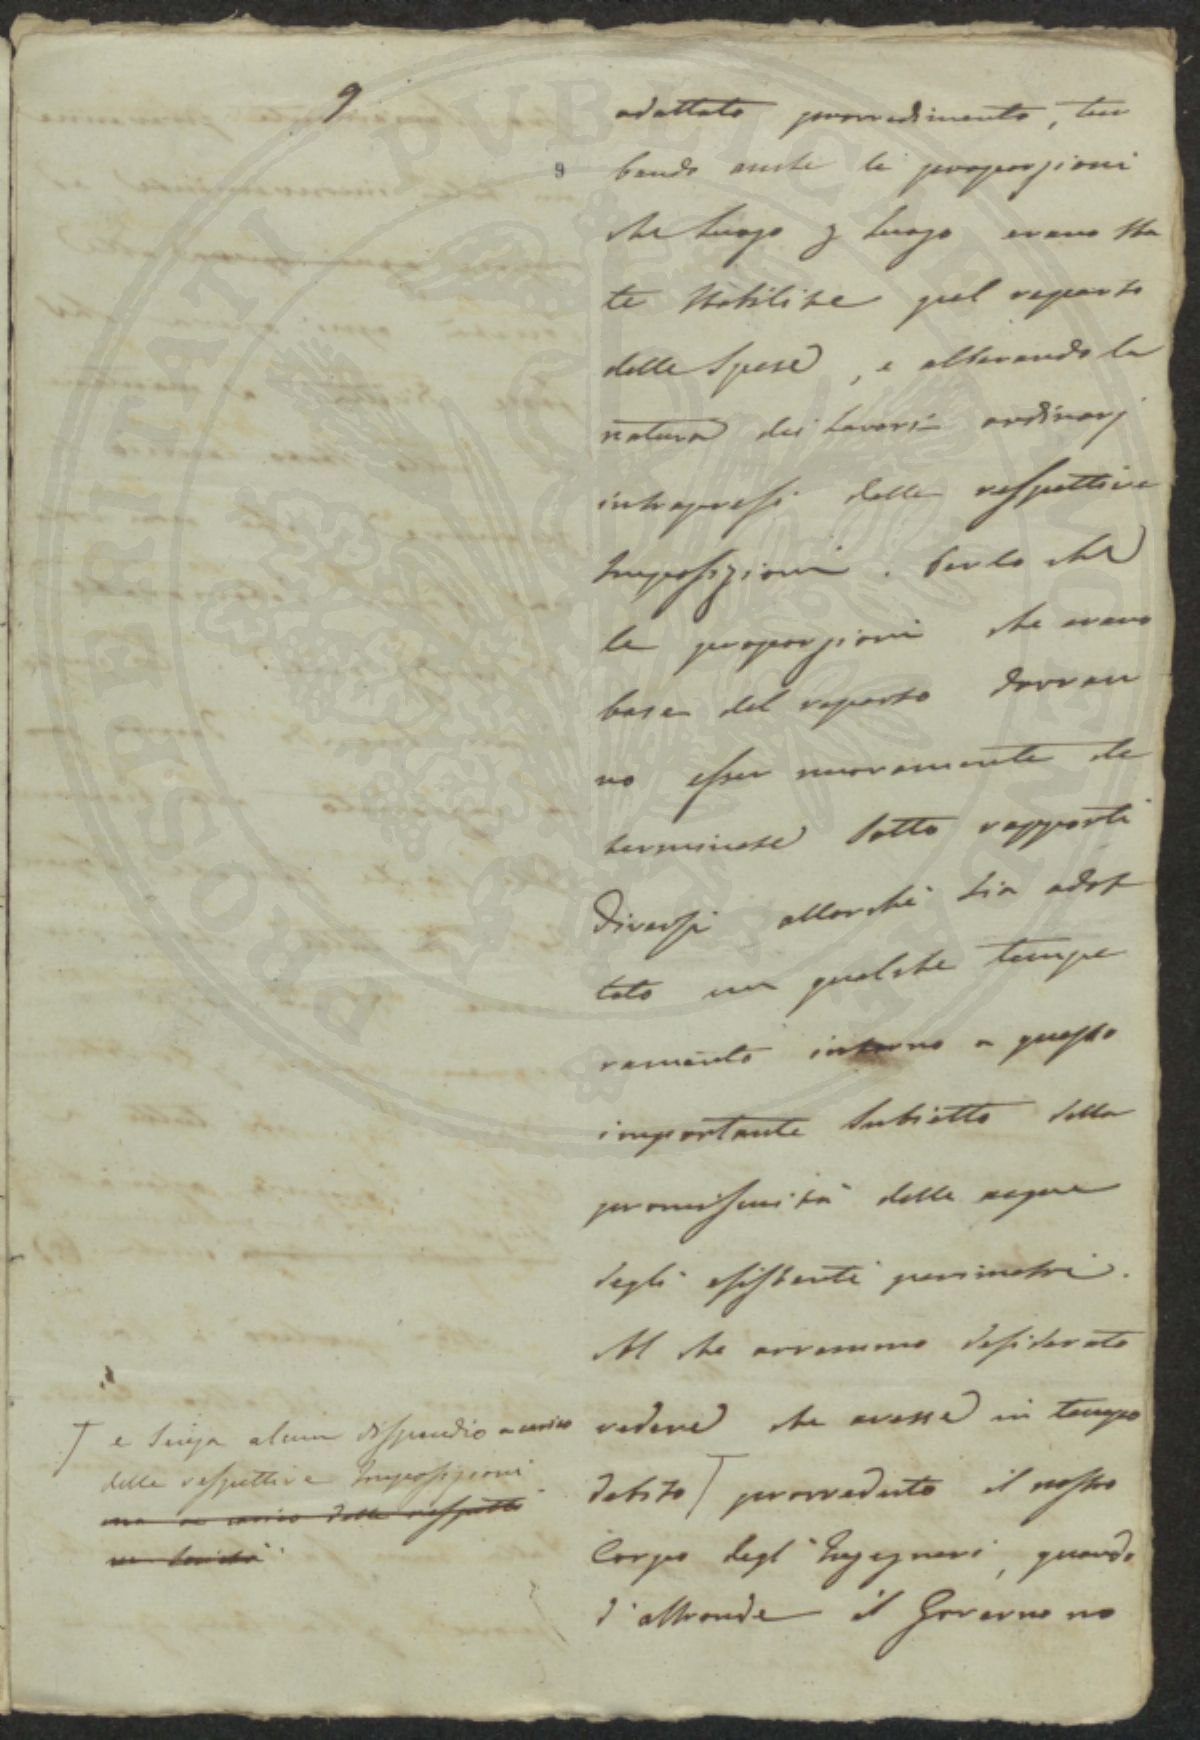 9
9
adattato provvedimento, tur
bando anche le proporzioni
che luogo p luogo erano sta
te stabilite pel reparto
delle spese, e alterando la
natura dei lavori ordinarj
intrapresi dalle respettive
Imposizioni. Perlo che
le proporzioni che erano
base del reparto dovran
no esser nuovamente de
terminate sotto rapporti
diversi allorchè sia adot
tato un qualche tempe
ramento intorno a questo
importante subietto della
promiscuità delle acque
degli esistenti perimetri.
Al che avremmo desiderato
vedere che avesse in tempo
debito provveduto il nostro
Corpo degl'Ingegneri, quando
d'altronde il Governo no
e senza alcun dispendio a carico
delle respettive Imposizioni
ma a carico delle respetti
ve
PROSPERITATI PVBLICAE